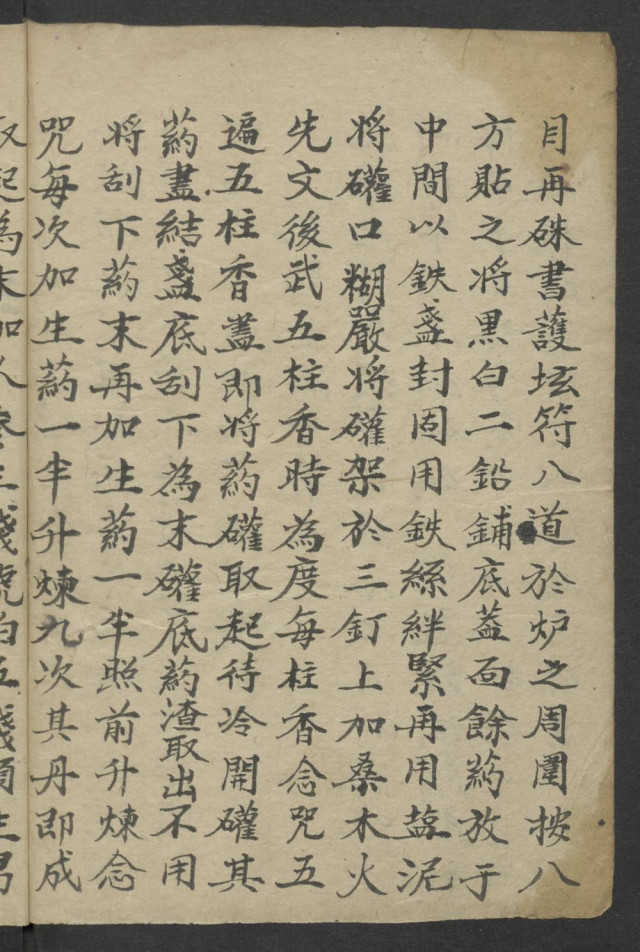 目再硃書護坛符八道於炉之周圍按八
方貼之将黑白二鉛鋪底盖面餘药放于
中間以鉄盞封固用鉄絲絆緊再用盐泥
将礶口糊嚴将礶架於三釘上加桑木火
先文後武五柱香時為度每柱香念咒五
遍五柱香盡即将药礶取起待冷開礶其
药盡結盞底刮下為末礶底药渣取出不用
将刮下药末再加生药一半照前升煉念
咒每次加生药一半升煉九次其丹即成
取起為末加人參三錢琥珀五錢